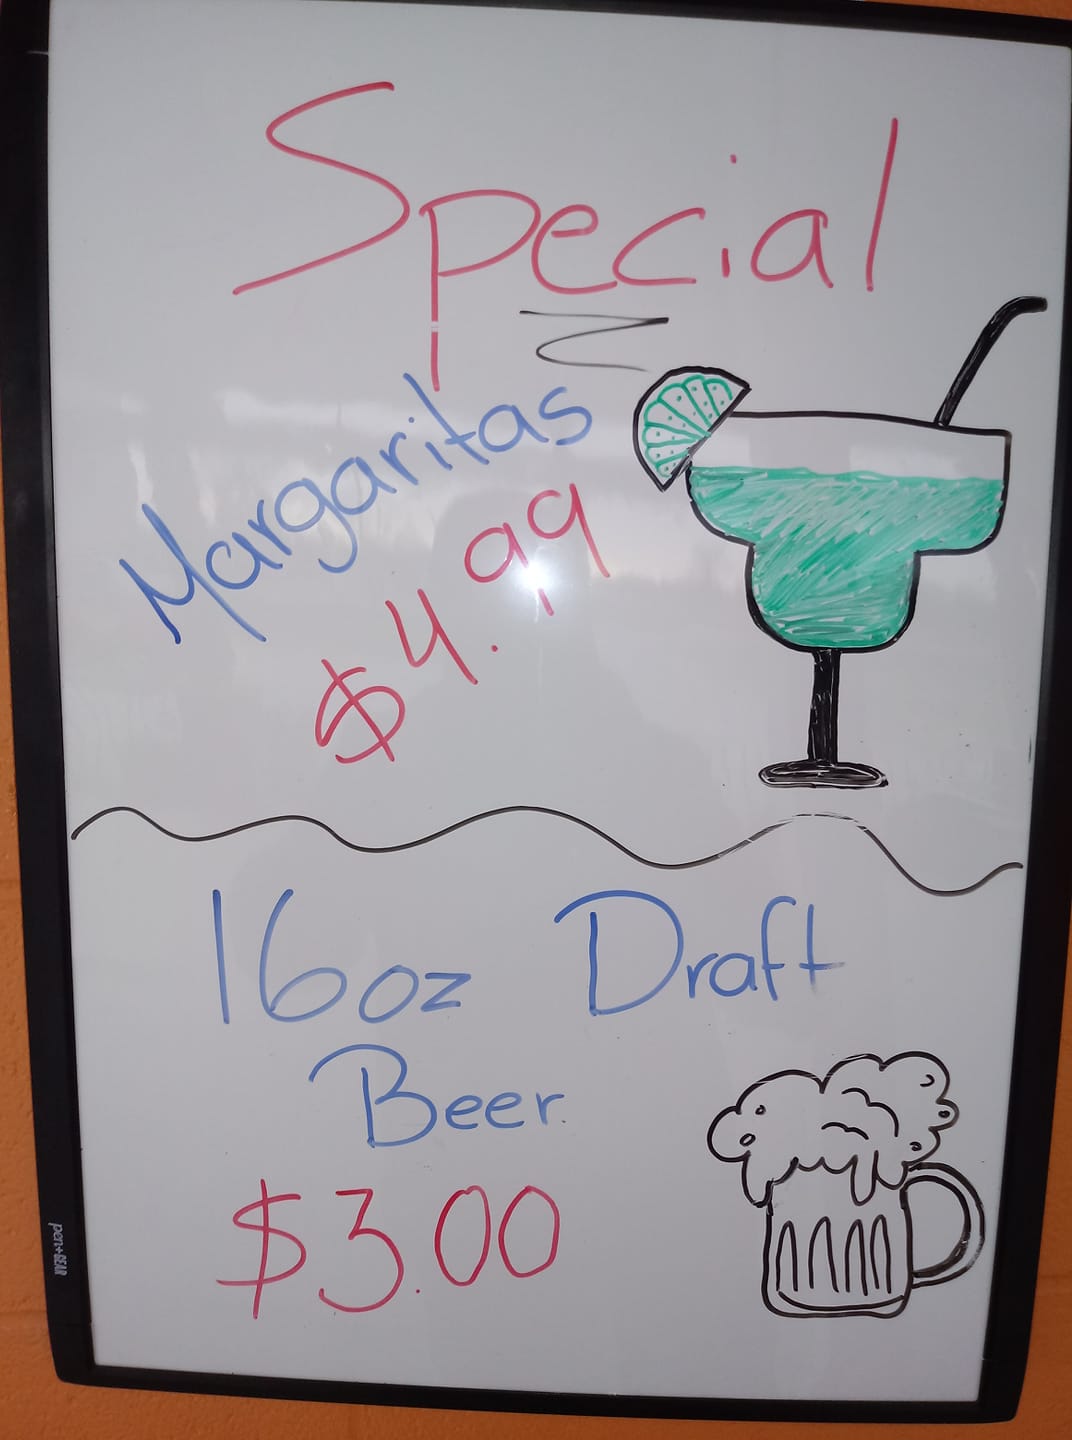 Special
Margaritas
$4.99
16oz Draft
Beer.
$3.00
pen+GEAR